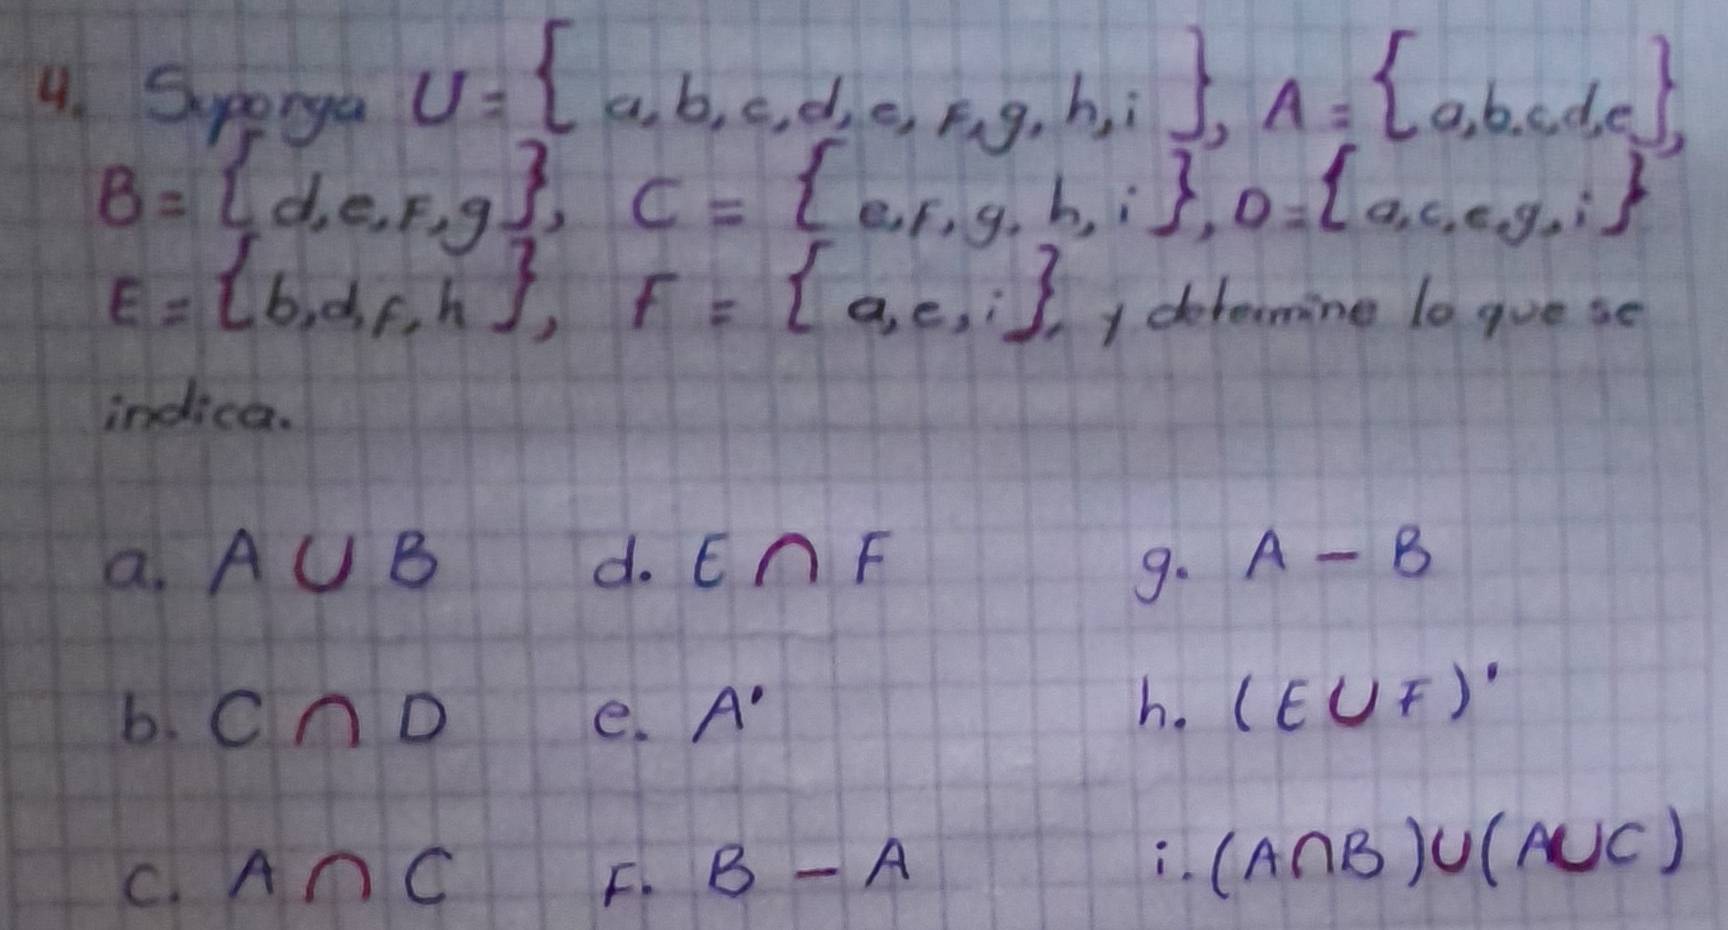 4. Suponga U = { a, b, c, d, e, F, g, h, i }, A = { a, b, c, d, e },
B = { d, e, F, g }, C = { e, F, g, h, i }, D = { a, c, e, g, i }
E = { b, d, F, h }, F = { a, e, i }, y determine lo que se
indica.
a. A ∪ B d. E ∩ F g. A - B
b. C ∩ D e. A' h. (E ∪ F)'
c. A ∩ C F. B - A i. (A ∩ B) ∪ (A ∪ C)